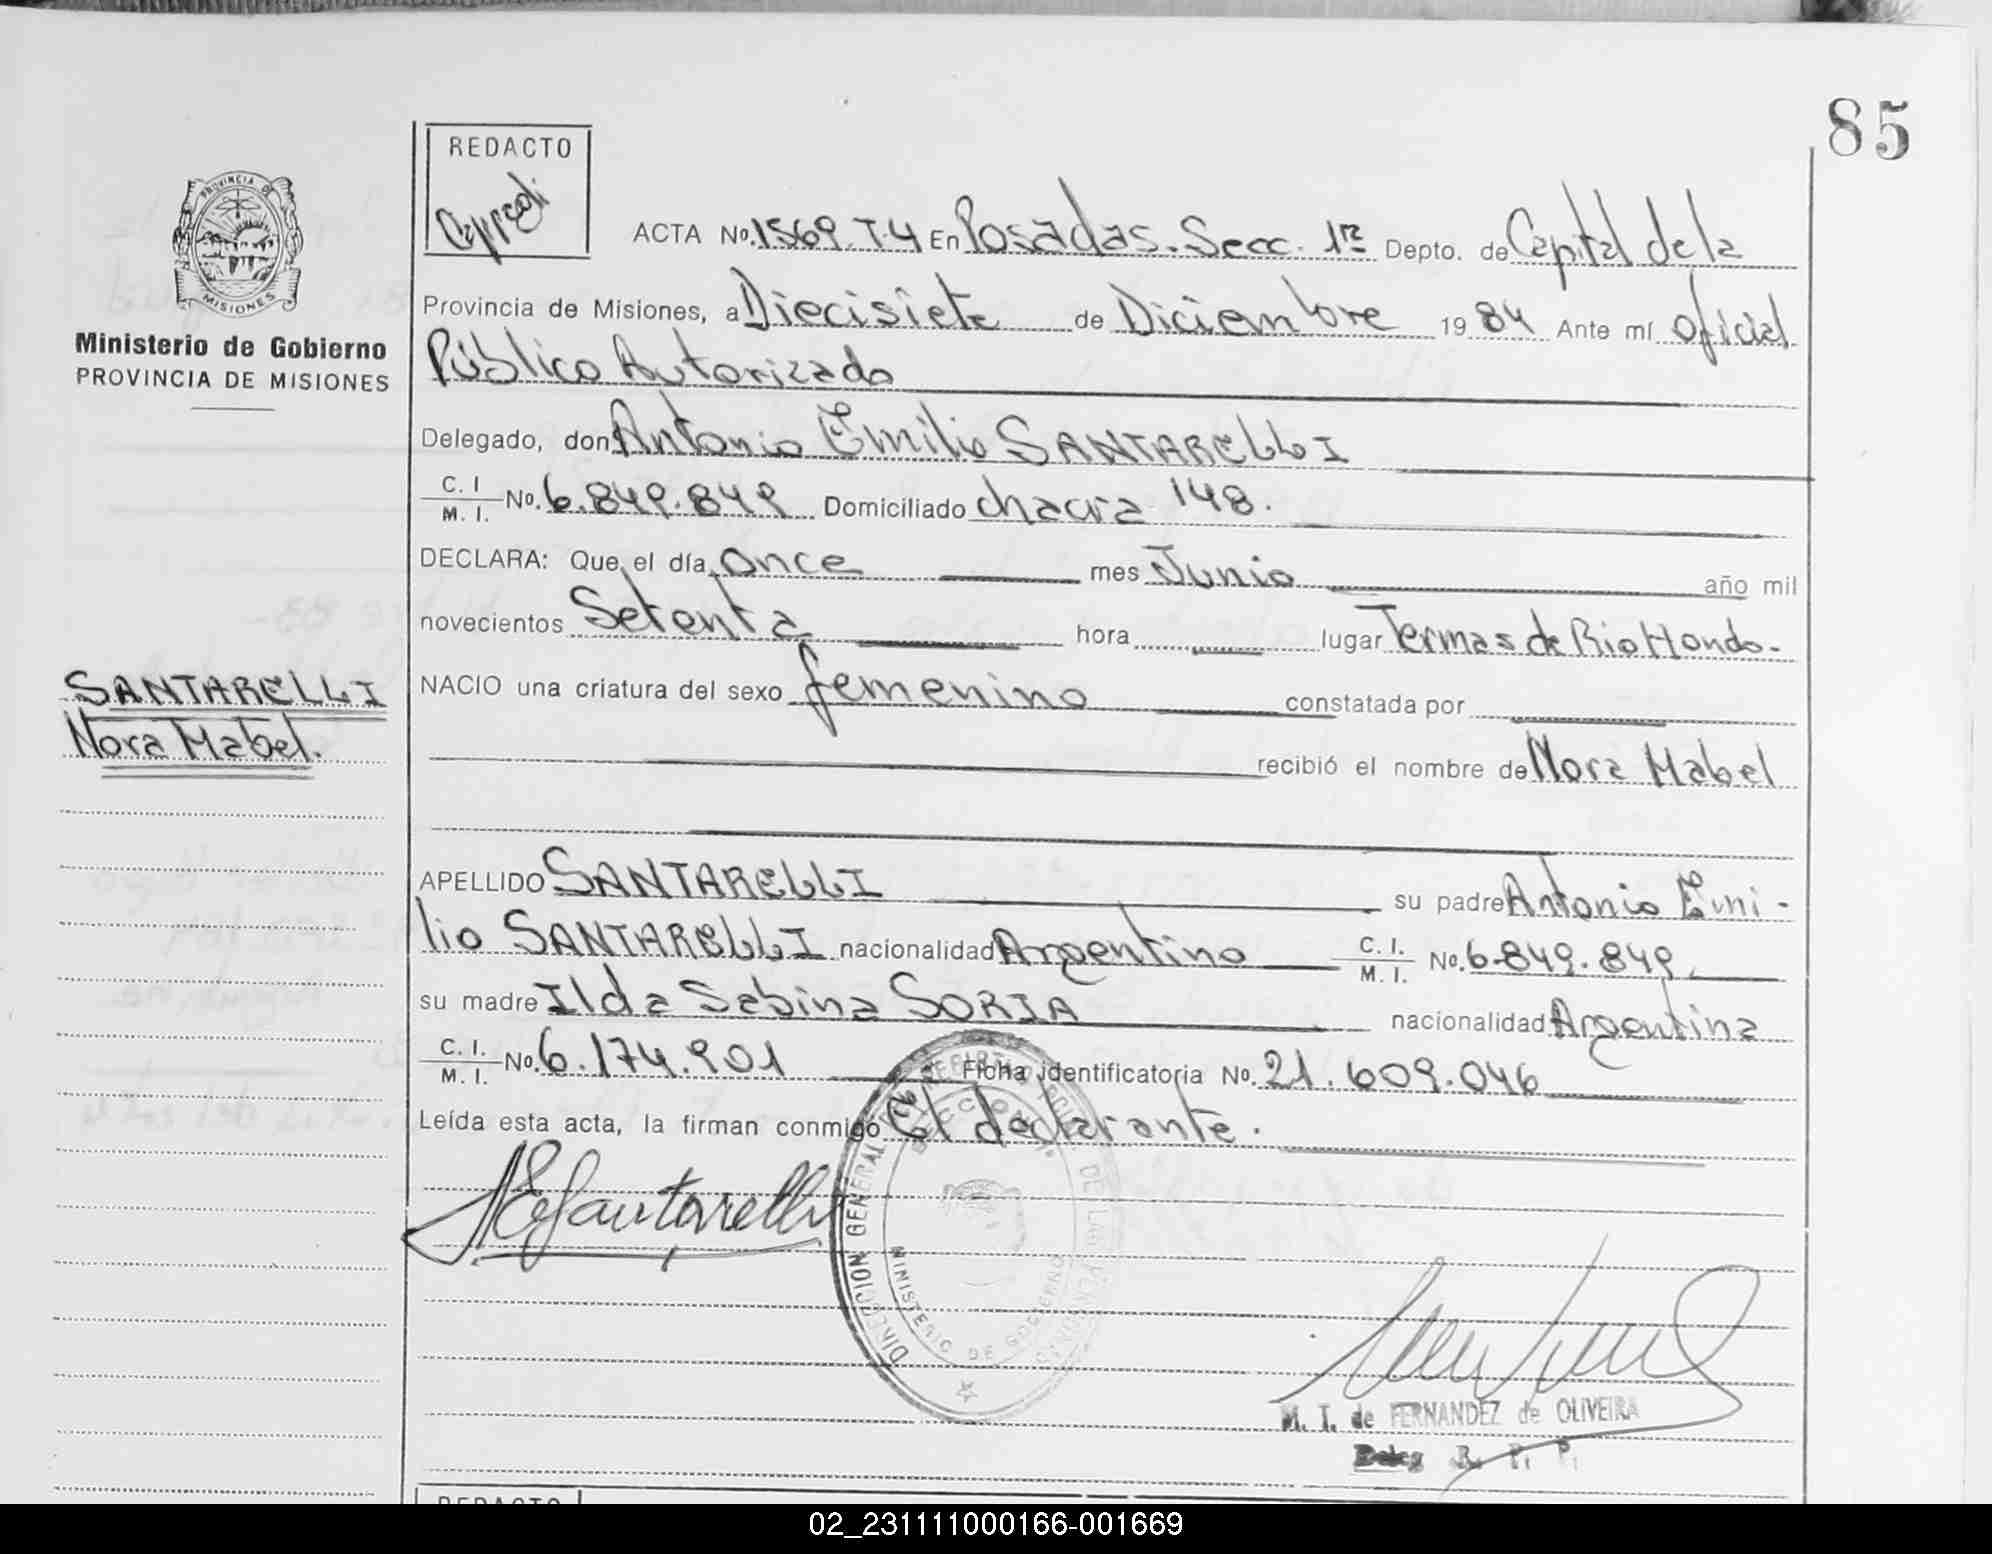 85
REDACTO
PROVINCIA DE
MISIONES
ACTA No. 1569. T.4 En Posadas. Secc. 1ra Depto. de Capital de la
Provincia de Misiones, a Diecisiete de Diciembre 1984 Ante mí oficial
Público Autorizado
Ministerio de Gobierno
PROVINCIA DE MISIONES
Delegado, don Antonio Emilio SANTARELLI
C. I. / M. I. No. 6.849.849 Domiciliado chacra 148.
DECLARA: Que el día once mes Junio año mil
novecientos Setenta hora lugar Termas de Rio Hondo.-
SANTARELLI
Nora Mabel.
NACIO una criatura del sexo femenino constatada por
recibió el nombre de Nora Mabel
APELLIDO SANTARELLI su padre Antonio Emi-
lio SANTARELLI nacionalidad Argentino C. I. / M. I. No. 6.849.849.
su madre Ilda Sabina SORIA nacionalidad Argentina
C. I. / M. I. No. 6.174.901 Ficha identificatoria No. 21.609.046
Leída esta acta, la firman conmigo El declarante.
AESantarelli
DIRECCION GENERAL DEL REGISTRO DE LAS
MINISTERIO DE GOBIERNO
M. T. de FERNANDEZ de OLIVEIRA
Deleg R. P. P.
REDACTO
02_231111000166-001669